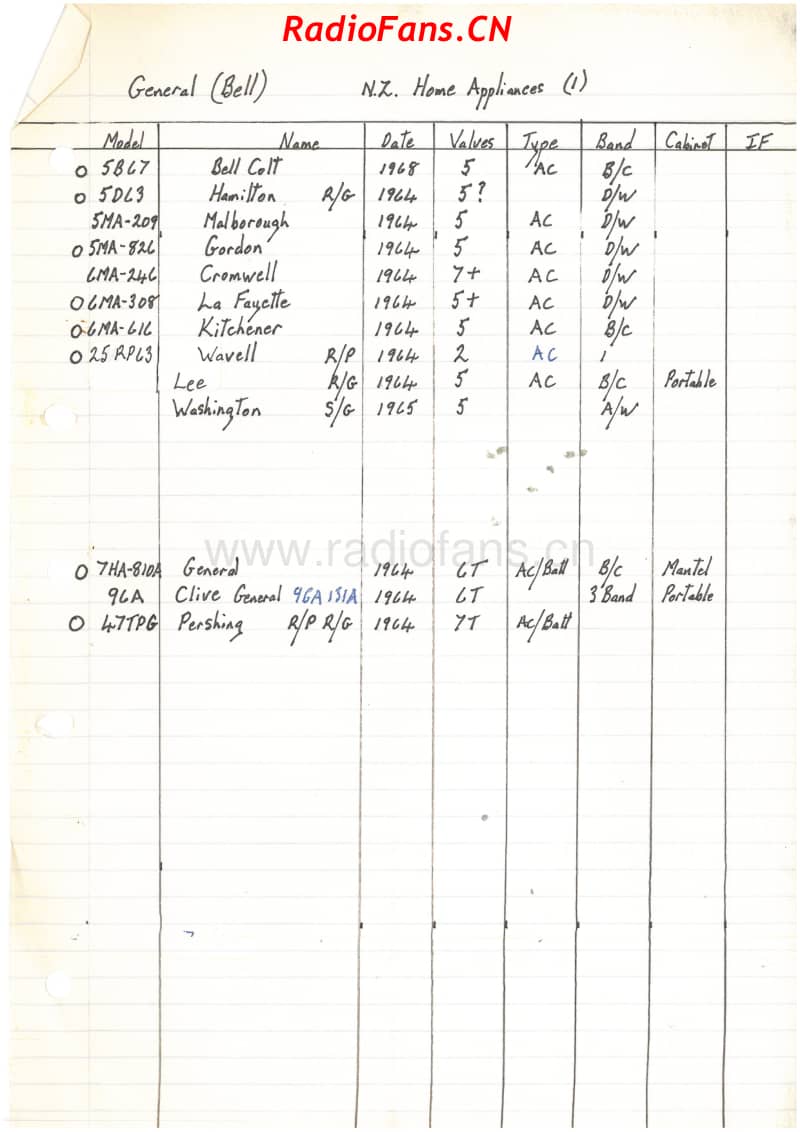 RadioFans.CN
General (Bell) N.Z. Home Appliances (1)
Model Name Date Values Type Band Cabinet IF
O 5B67 Bell Colt 1968 5 AC B/C
O 5D63 Hamilton R/G 1964 5? D/W
5MA-209 Malborough 1964 5 AC D/W
O 5MA-826 Gordon 1964 5 AC D/W
6MA-246 Cromwell 1964 7+ AC D/W
O 6MA-308 La Fayette 1964 5+ AC D/W
O 6MA-616 Kitchener 1964 5 AC B/C
O 25RP63 Wavell R/P 1964 2 AC 1
Lee R/G 1964 5 AC B/C Portable
Washington S/G 1965 5 A/W
www.radiofans.cn
O 7HA-810A General 1964 6T AC/Batt B/C Mantel
96A Clive General 96A151A 1964 6T 3 Band Portable
O 47TPG Pershing R/P R/G 1964 7T AC/Batt